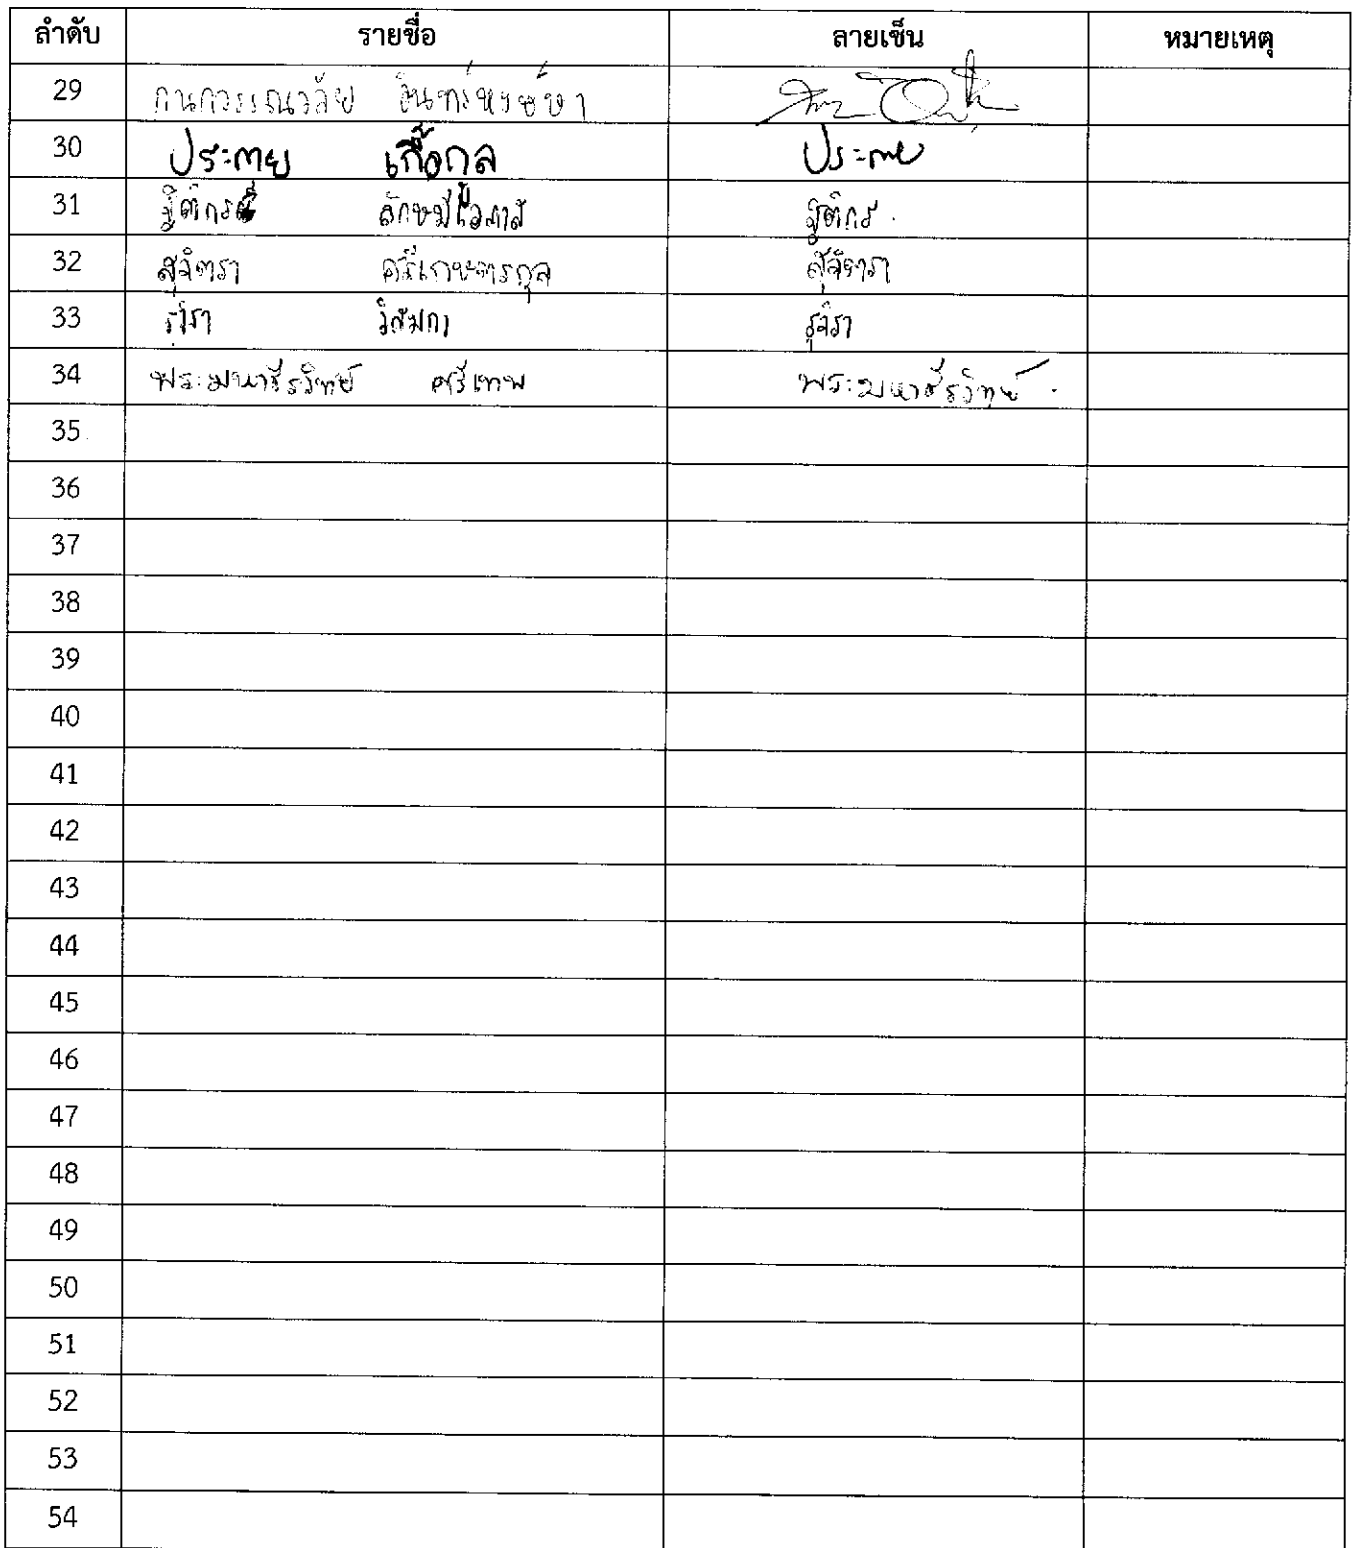 ลำดับ รายชื่อ ลายเซ็น หมายเหตุ
29 กนกวรรณวลัย
30 ประกาย เกื้อกูล ประกาย
31 ฐิติกร ลักษมีโอภาส ฐิติกร
32 สุจิตรา ศรีเกษตรกุล สุจิตรา
33 รุจิรา รุจิรา
34 พระมหาธีรวิทย์ ศรีเทพ พระมหาธีรวิทย์
35
36
37
38
39
40
41
42
43
44
45
46
47
48
49
50
51
52
53
54